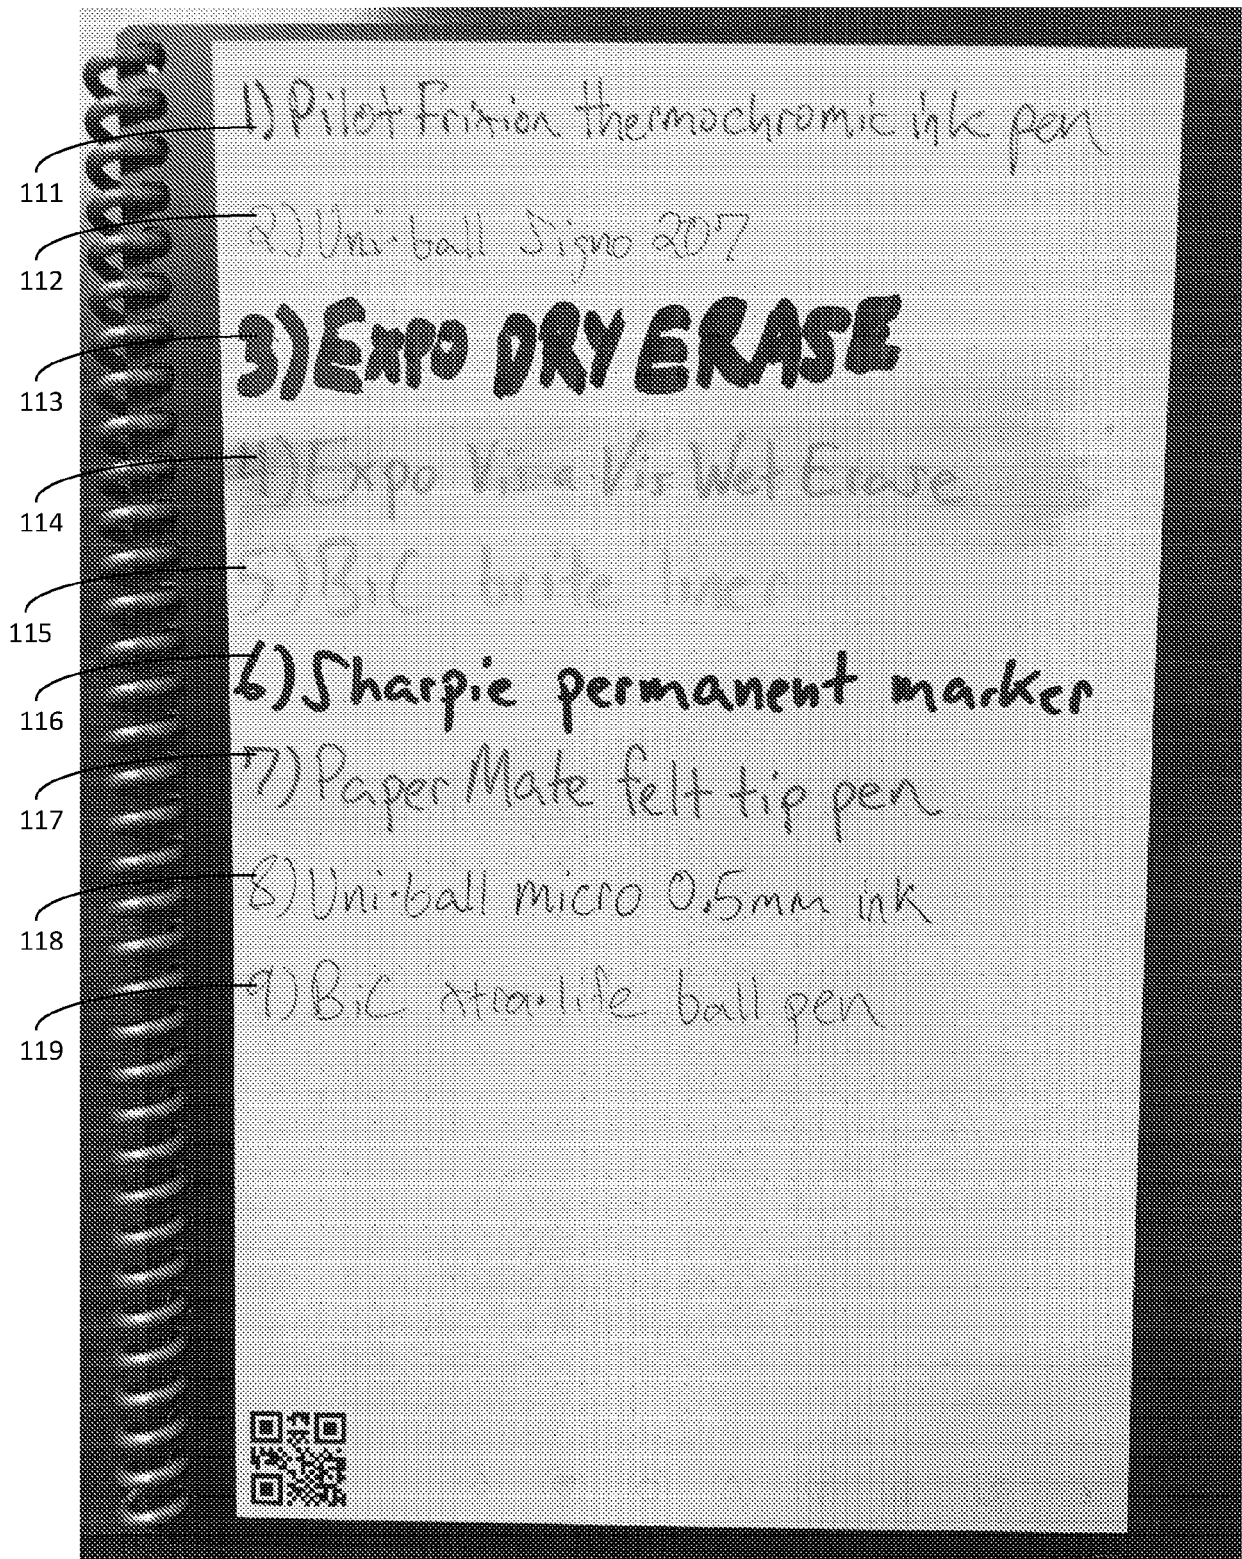 1) Pilot Frixion thermochromic ink pen
111
2) Uni-ball Signo 207
112
3) EXPO DRY ERASE
113
4) Expo Vis-a-Vis Wet Erase
114
5) BiC brite liner
115
6) Sharpie permanent marker
116
7) Paper Mate felt tip pen
117
8) Uni-ball micro 0.5mm ink
118
9) BiC xtra-life ball pen
119